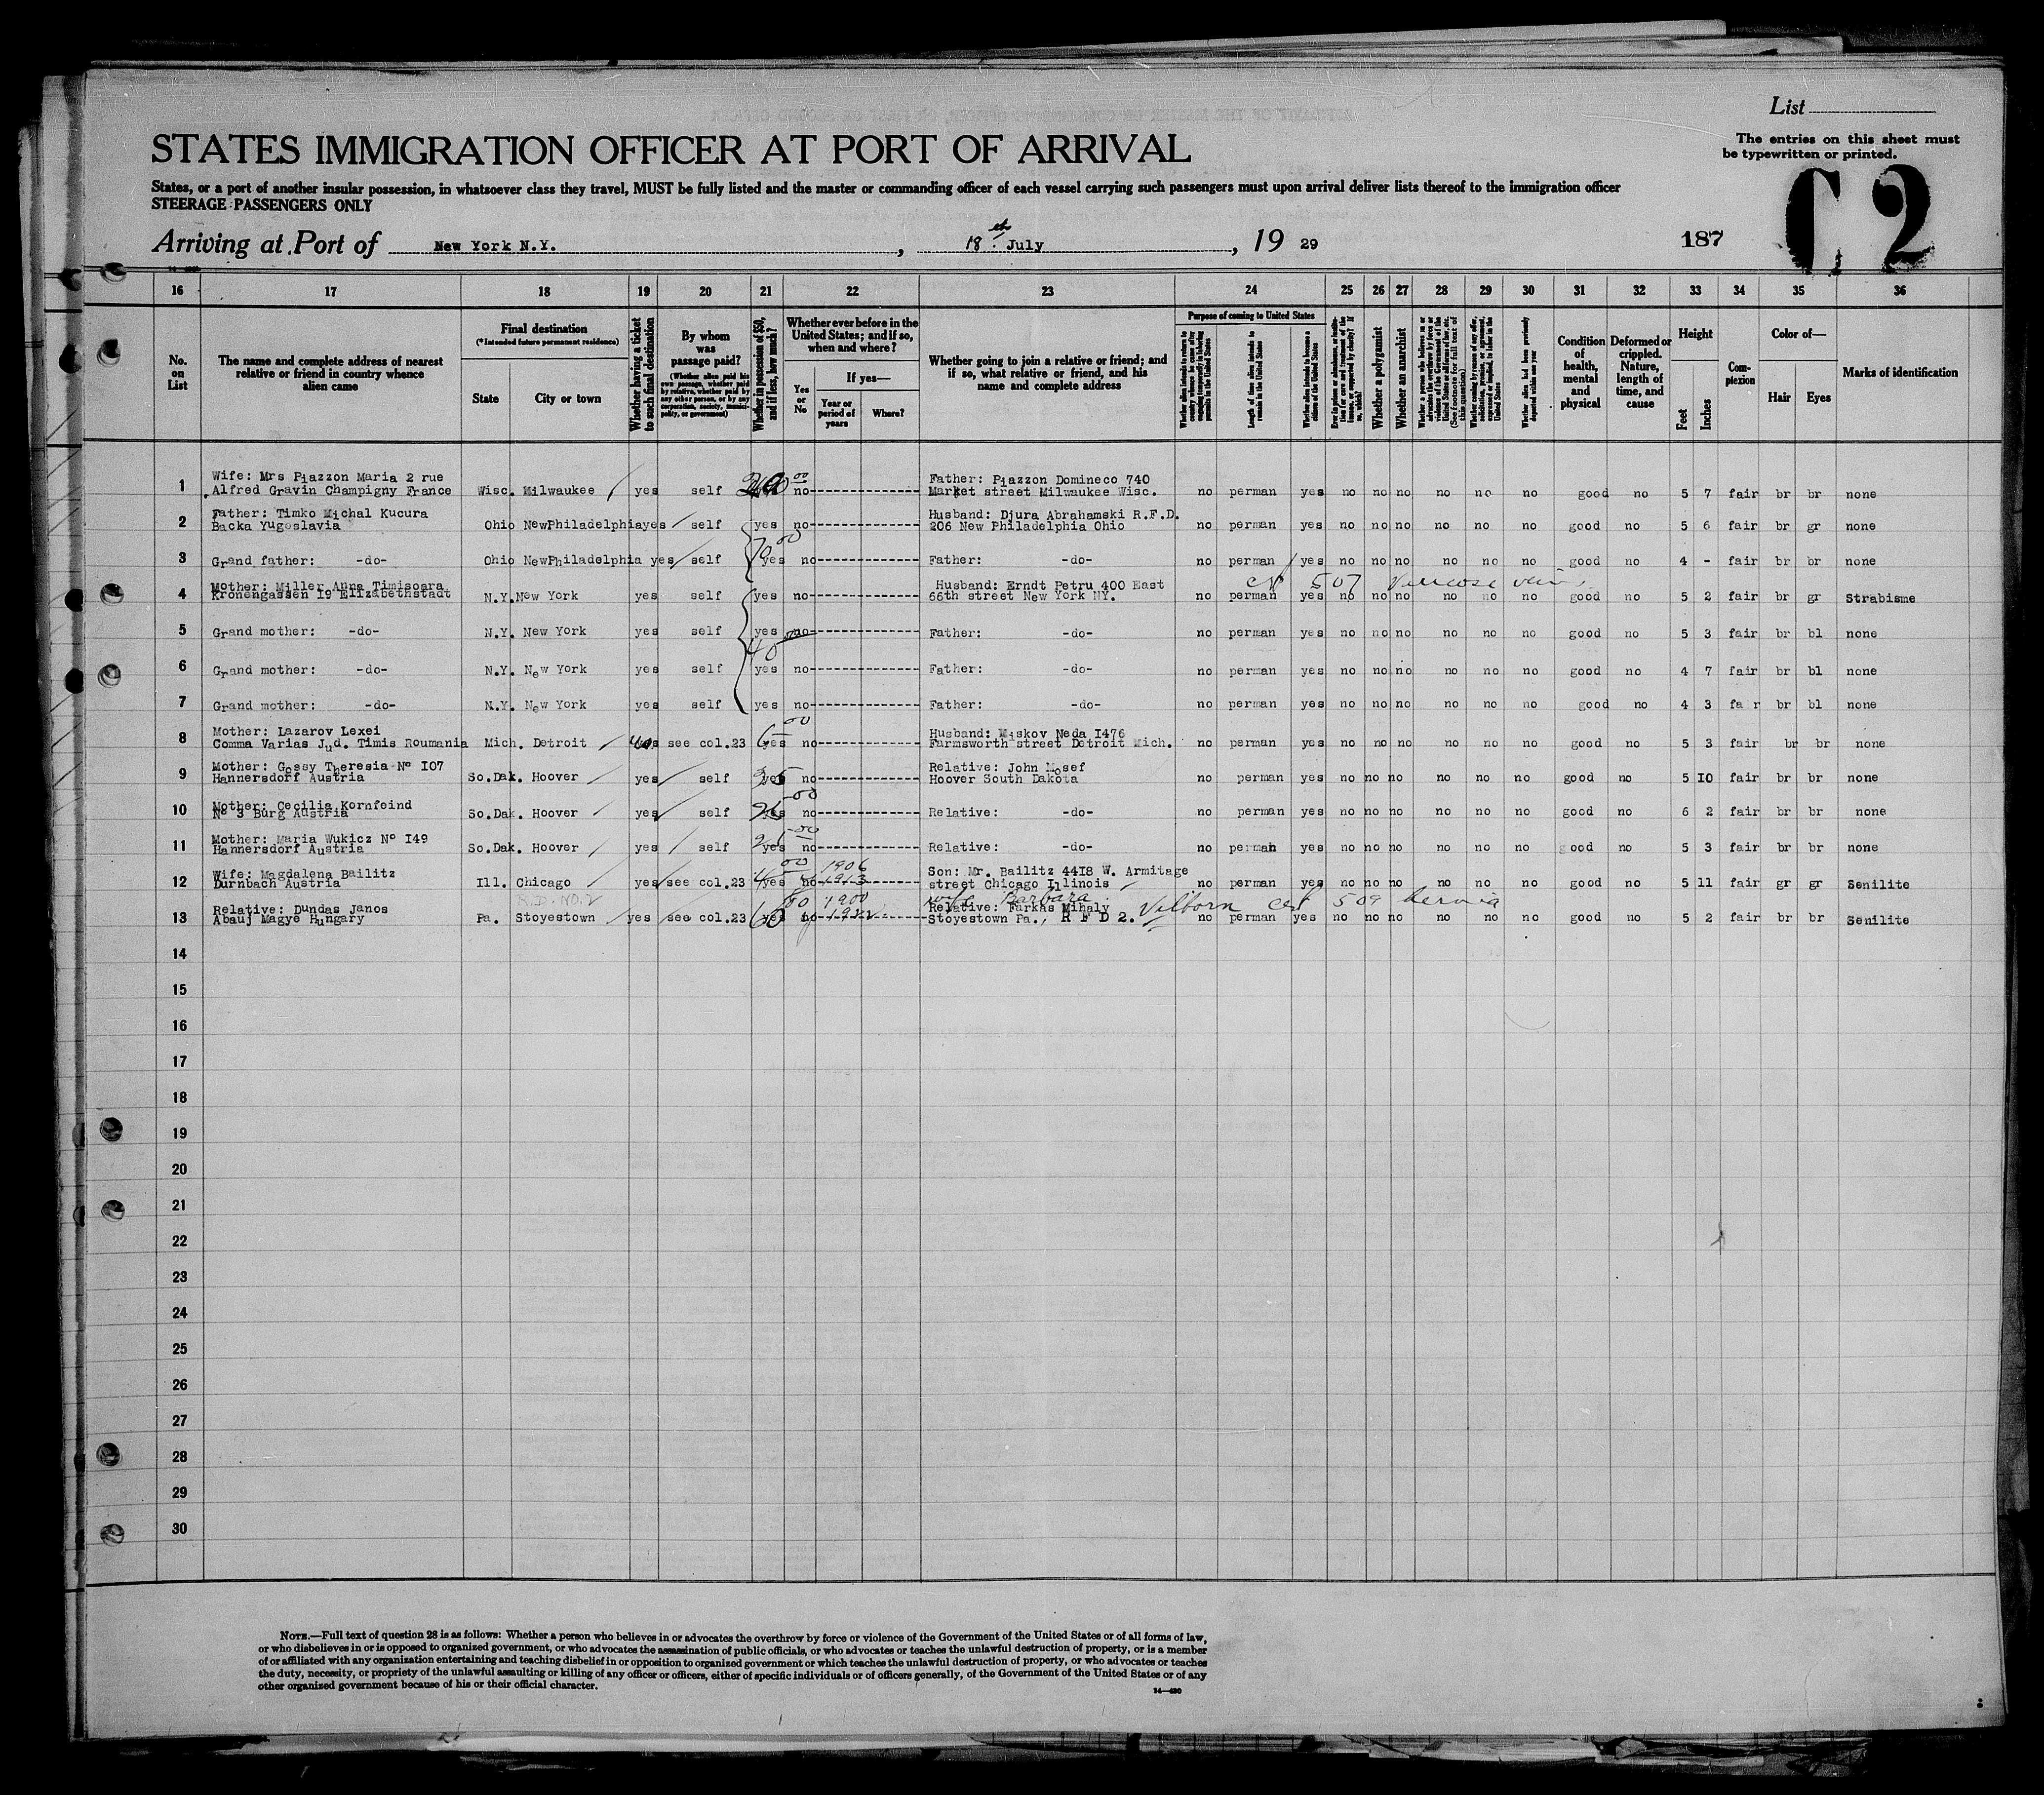 List
The entries on this sheet must
be typewritten or printed.
STATES IMMIGRATION OFFICER AT PORT OF ARRIVAL
C 2
States, or a port of another insular possession, in whatsoever class they travel, MUST be fully listed and the master or commanding officer of each vessel carrying such passengers must upon arrival deliver lists thereof to the immigration officer
STEERAGE PASSENGERS ONLY
Arriving at Port of New York N.Y., 18th July, 19 29 187
16 17 18 19 20 21 22 23 24 25 26 27 28 29 30 31 32 33 34 35 36
No. on List
The name and complete address of nearest relative or friend in country whence alien came
Final destination
(*Intended future permanent residence)
State
City or town
Whether having a ticket to such final destination
By whom was passage paid?
(Whether alien paid his own passage, whether paid by relative, whether paid by any other person, or by any corporation, society, municipality, or government)
Whether in possession of $50, and if less, how much?
Whether ever before in the United States; and if so, when and where?
Yes or No
If yes—
Year or period of years
Where?
Whether going to join a relative or friend; and if so, what relative or friend, and his name and complete address
Purpose of coming to United States
Length of time alien intends to remain in the United States
Whether alien intends to become a citizen of the United States
Whether a polygamist
Whether an anarchist
Whether alien had been previously deported within one year
Condition of health, mental and physical
Deformed or crippled. Nature, length of time, and cause
Height
Feet
Inches
Complexion
Color of—
Hair
Eyes
Marks of identification
1 Wife: Mrs Piazzon Maria 2 rue Alfred Gravin Champigny France Wisc. Milwaukee yes self no Father: Piazzon Domineco 740 Market street Milwaukee Wisc. no perman yes no no no no no no good no 5 7 fair br br none
2 Father: Timko Michal Kucura Backa Yugoslavia Ohio NewPhiladelphia yes self yes no Husband: Djura Abrahamski R.F.D. 206 New Philadelphia Ohio no perman yes no no no no no no good no 5 6 fair br gr none
70 00
3 Grand father: -do- Ohio NewPhiladelphia yes self yes no Father: -do- no perman yes no no no no no no good no 4 - fair br br none
507 Varicose veins
4 Mother: Miller Anna Timisoara Kronengassen 19 Elizabethstadt N.Y. New York yes self yes no Husband: Erndt Petru 400 East 66th street New York NY. no perman yes no no no no no no good no 5 2 fair br gr Strabisme
5 Grand mother: -do- N.Y. New York yes self yes no Father: -do- no perman yes no no no no no no good no 5 3 fair br bl none
40
6 Grand mother: -do- N.Y. New York yes self yes no Father: -do- no perman yes no no no no no no good no 4 7 fair br bl none
7 Grand mother: -do- N.Y. New York yes self yes no Father: -do- no perman yes no no no no no no good no 4 3 fa r br bl none
8 Mother: Lazarov Lexei Comma Varias Jud. Timis Roumania Mich. Detroit yes see col.23 yes 6 00 no Husband: Miskov Neda I476 Farmsworth street Detroit Mich. no perman yes no no no no no no good no 5 3 fair br br none
9 Mother: Gossy Theresia No I07 Hannersdorf Austria So.Dak. Hoover yes self yes 25 no Relative: John Mosef Hoover South Dakota no perman yes no no no no no no good no 5 IO fair br br none
10 Mother: Cecilia Kornfeind No 3 Burg Austria So.Dak. Hoover yes self yes 25 00 no Relative: -do- no perman yes no no no no no no good no 6 2 fair br br none
11 Mother: Maria Wukicz No I49 Hannersdorf Austria So.Dak. Hoover yes self yes 25 00 no Relative: -do- no perman yes no no no no no no good no 5 3 fair br br none
12 Wife: Magdalena Bailitz Durnbach Austria Ill. Chicago yes see col.23 yes no 1906 1913 Son: Mr. Bailitz 44I8 W. Armitage street Chicago Illinois no perman yes no no no no no no good no 5 11 fair gr gr Senilite
R.D. NO. 2
wife Barbara
13 Relative: Dundas Janos Abauj Magyo Hungary Pa. Stoyestown yes see col.23 yes 60 00 no 1900 Relative: Farkas Mihaly Stoyestown Pa., R F D 2. Cert 509 hernia no perman yes no no no no no no good no 5 2 fair br br Senilite
14
15
16
17
18
19
20
21
22
23
24
25
26
27
28
29
30
NOTE.—Full text of question 28 is as follows: Whether a person who believes in or advocates the overthrow by force or violence of the Government of the United States or of all forms of law,
or who disbelieves in or is opposed to organized government, or who advocates the assassination of public officials, or who advocates or teaches the unlawful destruction of property, or is a member
of or affiliated with any organization entertaining and teaching disbelief in or opposition to organized government or which teaches the unlawful destruction of property, or who advocates or teaches
the duty, necessity, or propriety of the unlawful assaulting or killing of any officer or officers, either of specific individuals or of officers generally, of the Government of the United States or of any
other organized government because of his or their official character.
14—430